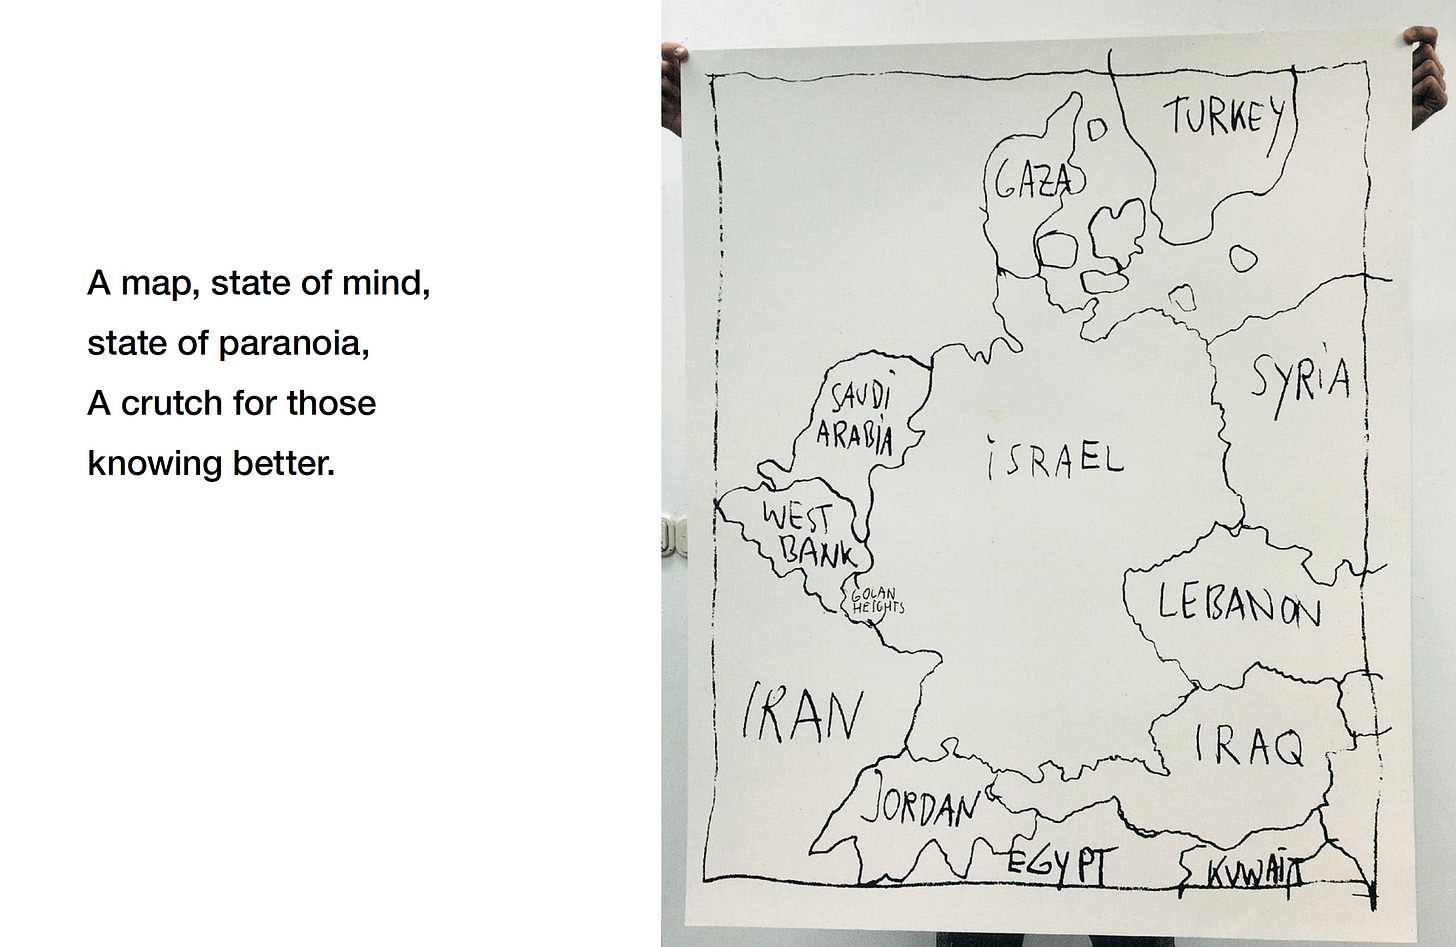 A map, state of mind,
state of paranoia,
A crutch for those
knowing better.
TURKEY
GAZA
SYRiA
SAUDi
ARABiA
iSRAEL
WEST
BANK
GOLAN
HEIGHTS
LEBANON
IRAN
IRAQ
JORDAN
EGYPT
KUWAiT